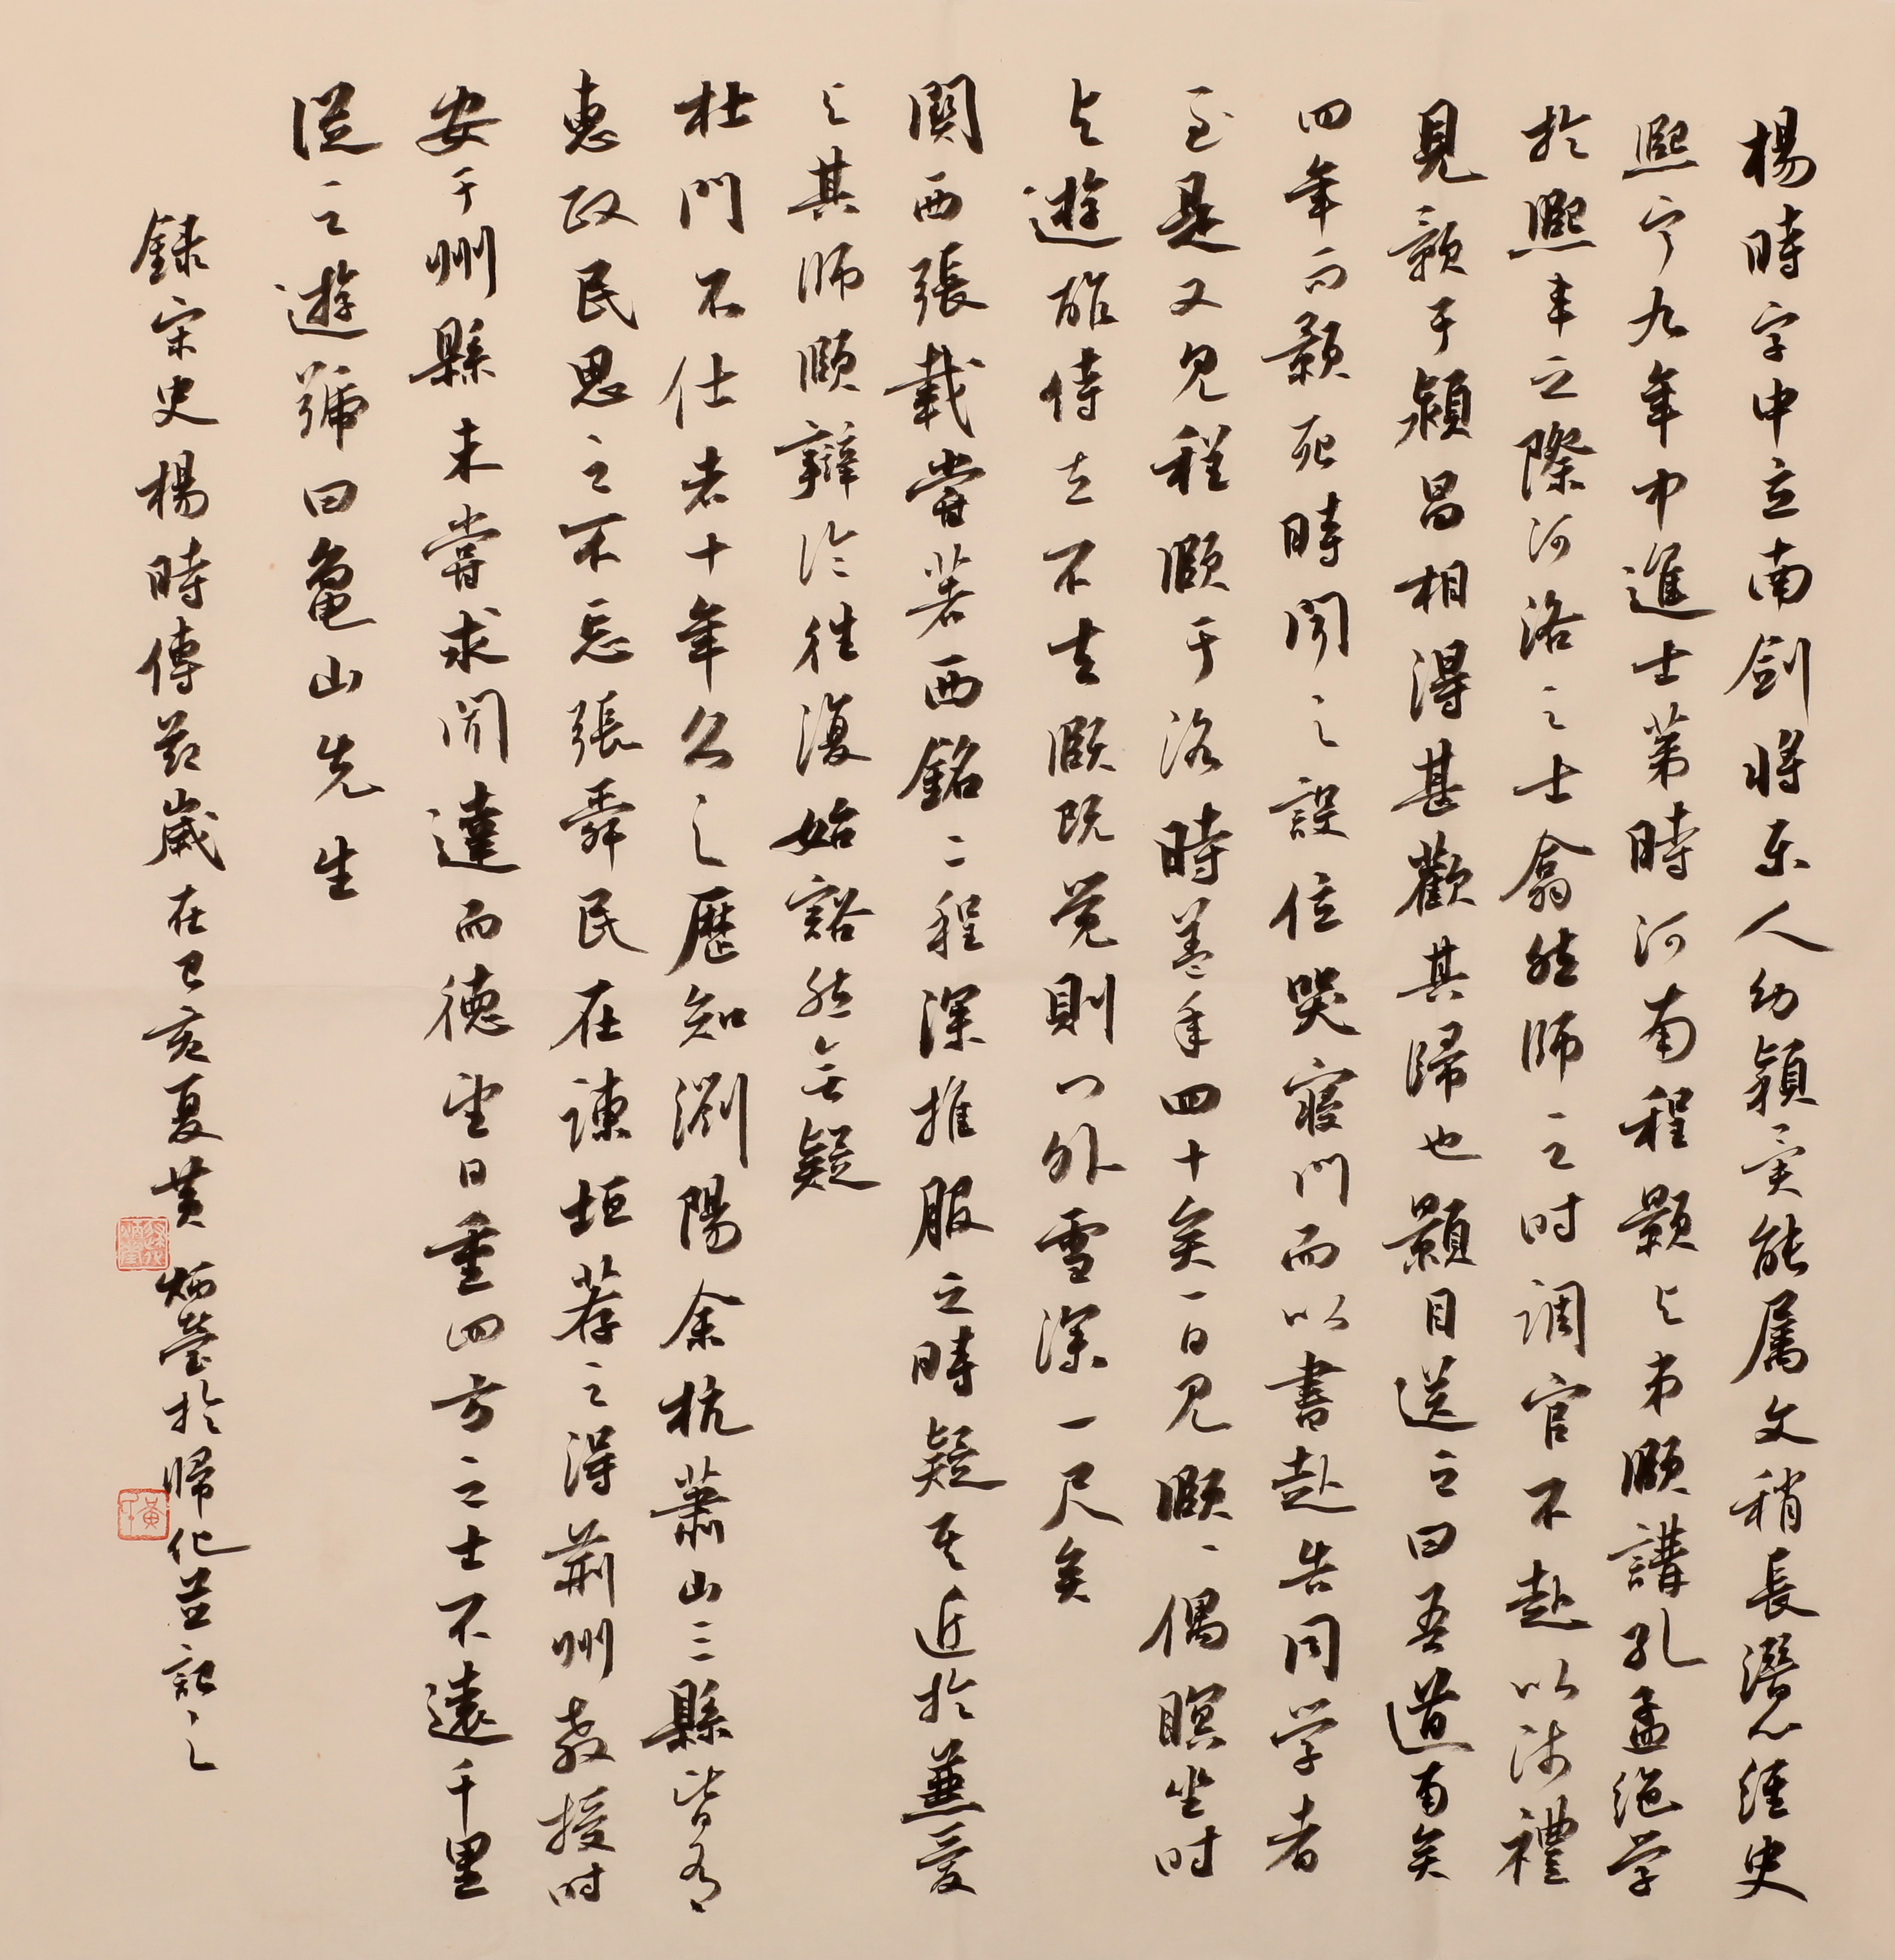 楊時字中立南劍將樂人幼穎異能屬文稍長潛心經史
熙寧九年中進士第時河南程顥與弟頤講孔孟絕学
於熙丰之際河洛之士翕然師之时調官不赴以師禮
見顥于潁昌相得甚歡其歸也顥目送之曰吾道南矣
四年而顥死時聞之設位哭寢門而以書赴告同学者
至是又見程頤于洛時蓋年四十矣一日見頤頤偶瞑坐时
與遊酢侍立不去頤既觉則门外雪深一尺矣
関西張載嘗著西銘二程深推服之時疑其近於兼爱
與其師頤辯論往復始豁然無疑
杜門不仕者十年久之歷知瀏陽余杭蕭山三縣皆有
惠政民思之不忘張舜民在諫垣荐之得荊州教授时
安于州縣未嘗求聞達而德望日重四方之士不遠千里
從之遊號曰龜山先生
録宋史楊時傳茲歲在己亥夏黄炳莹於歸化並記之